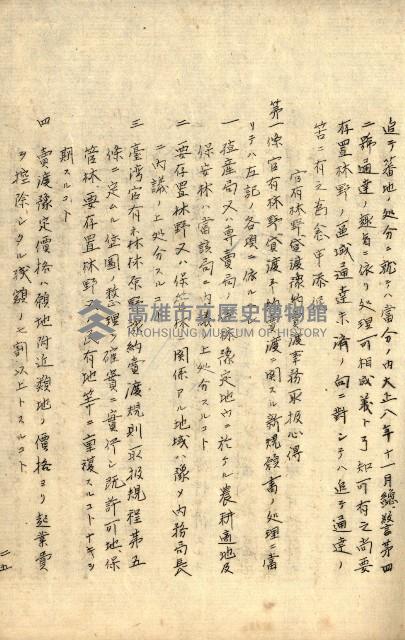 追テ蕃地ノ処分ニ就テハ当分ノ内大正八年十一月總警第四
二號通達ノ趣旨ニ依リ処理可相成義ト了知可有之尚要
存置林野ノ區域通達未済ノ向ニ対シテハ追テ通達ノ
筈ニ有之為念申添候
官有林野貸渡豫約賣渡事務取扱心得
第一條 官有林野貸渡予約賣渡ニ関スル新規願書ノ処理ニ當
リテハ左記ノ各項ニ依ルヘシ
一 殖産局又ハ專賣局 豫定地内ニ於ケル農耕適地及
保安林ハ當該局ニ内議ノ上処分スルコト
二 要存置林野又ハ保安林ニ関係アル地域ハ豫メ内務局長
ニ内議ノ上処分スルコト
三 臺湾官有森林原野豫約賣渡規則取扱規程第五
條ニ定ムル位圖整理ノ確實ニ實行シ既許可地保
管林要存置林野 有地等ニ重複スルコトナキヲ
期スルコト
四 賣渡豫定價格ハ願地附近類地ノ價格ヨリ起業費
ヲ控除シタル残額ノ七割以上トスルコト
二五
高雄市立歷史博物館
KAOHSIUNG MUSEUM OF HISTORY